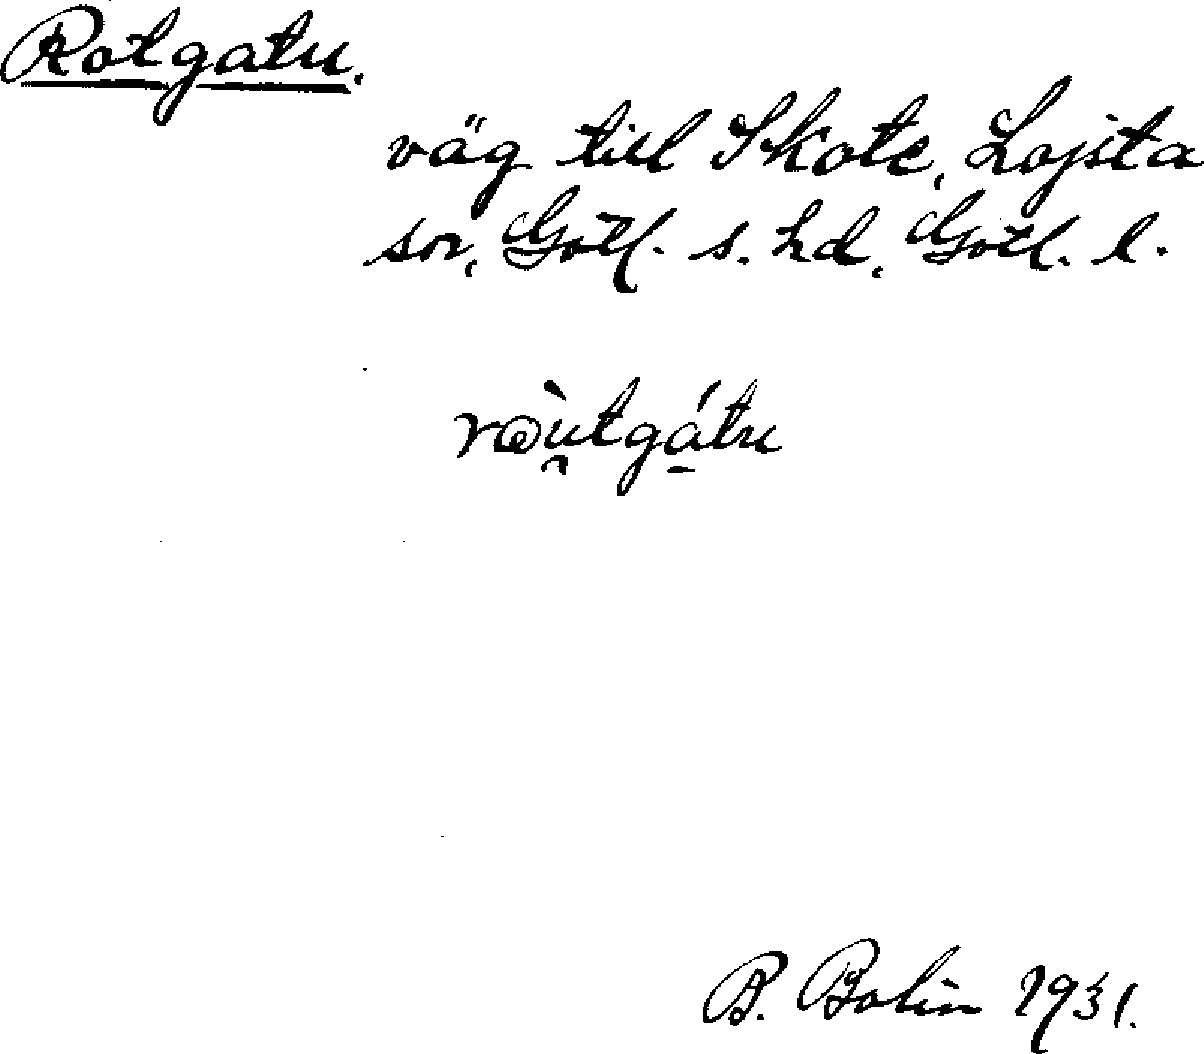 Rotgatu.
väg till Skote, Lojsta
sn, Gotl. s. hd, Gotl. l.
B. Bolin 1931.